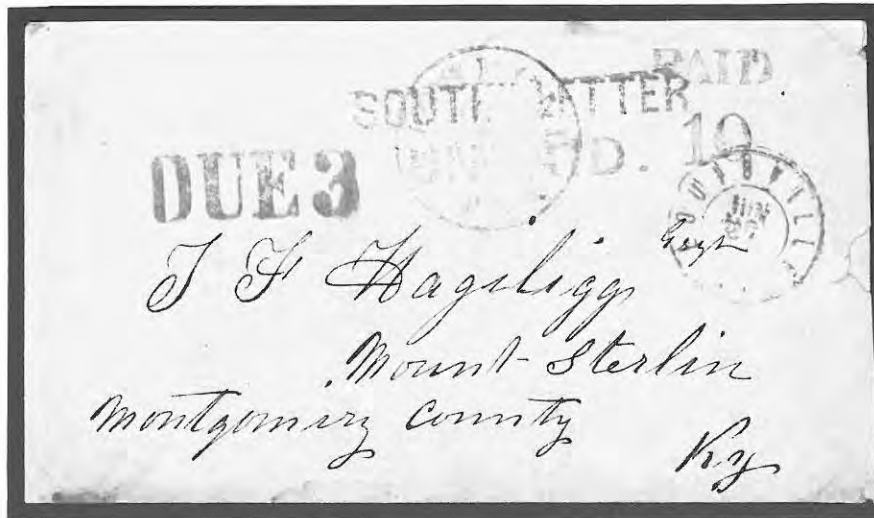 PAID
SOUTH LETTER
UNPAID. 10
DUE 3
LOUISVILLE
JUN
T F Hagiligg
Mount Sterlin
Montgomiry County
Ky